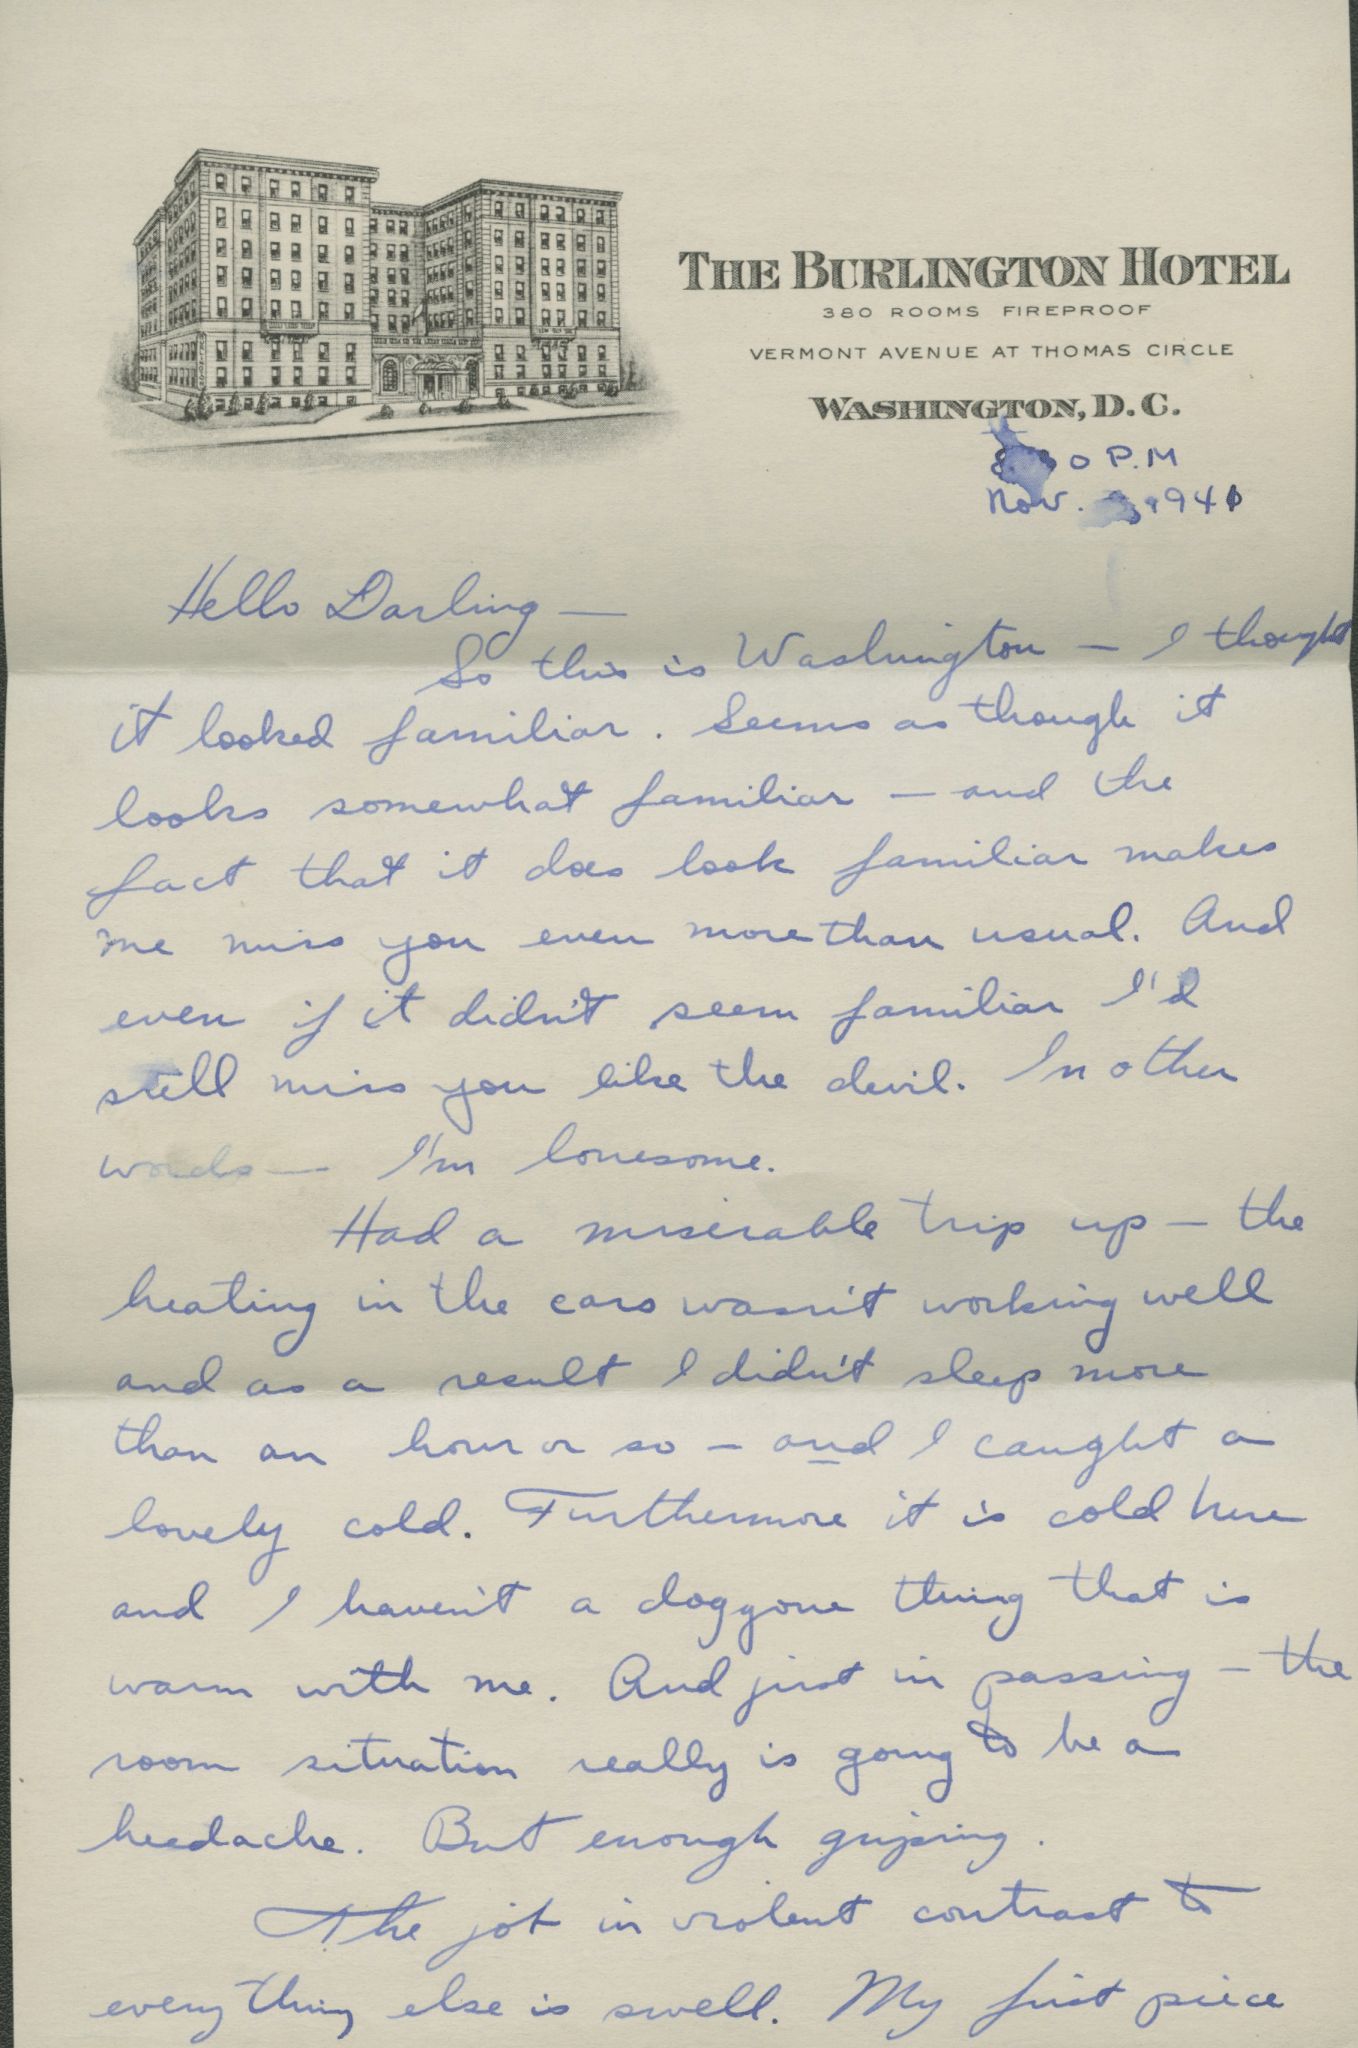 THE BURLINGTON HOTEL
380 ROOMS FIREPROOF
VERMONT AVENUE AT THOMAS CIRCLE
WASHINGTON, D.C.
P.M
Nov. 1941
Hello Darling —
So this is Washington — I thought
it looked familiar. Seems as though it
looks somewhat familiar — and the
fact that it does look familiar makes
me miss you even more than usual. And
even if it didn't seem familiar I'd
still miss you like the devil. In other
words — I'm lonesome.
Had a miserable trip up — the
heating in the cars wasn't working well
and as a result I didn't sleep more
than an hour or so — and I caught a
lovely cold. Furthermore it is cold here
and I haven't a doggone thing that is
warm with me. And just in passing — the
room situation really is going to be a
headache. But enough griping.
The job in violent contrast to
everything else is swell. My first piece